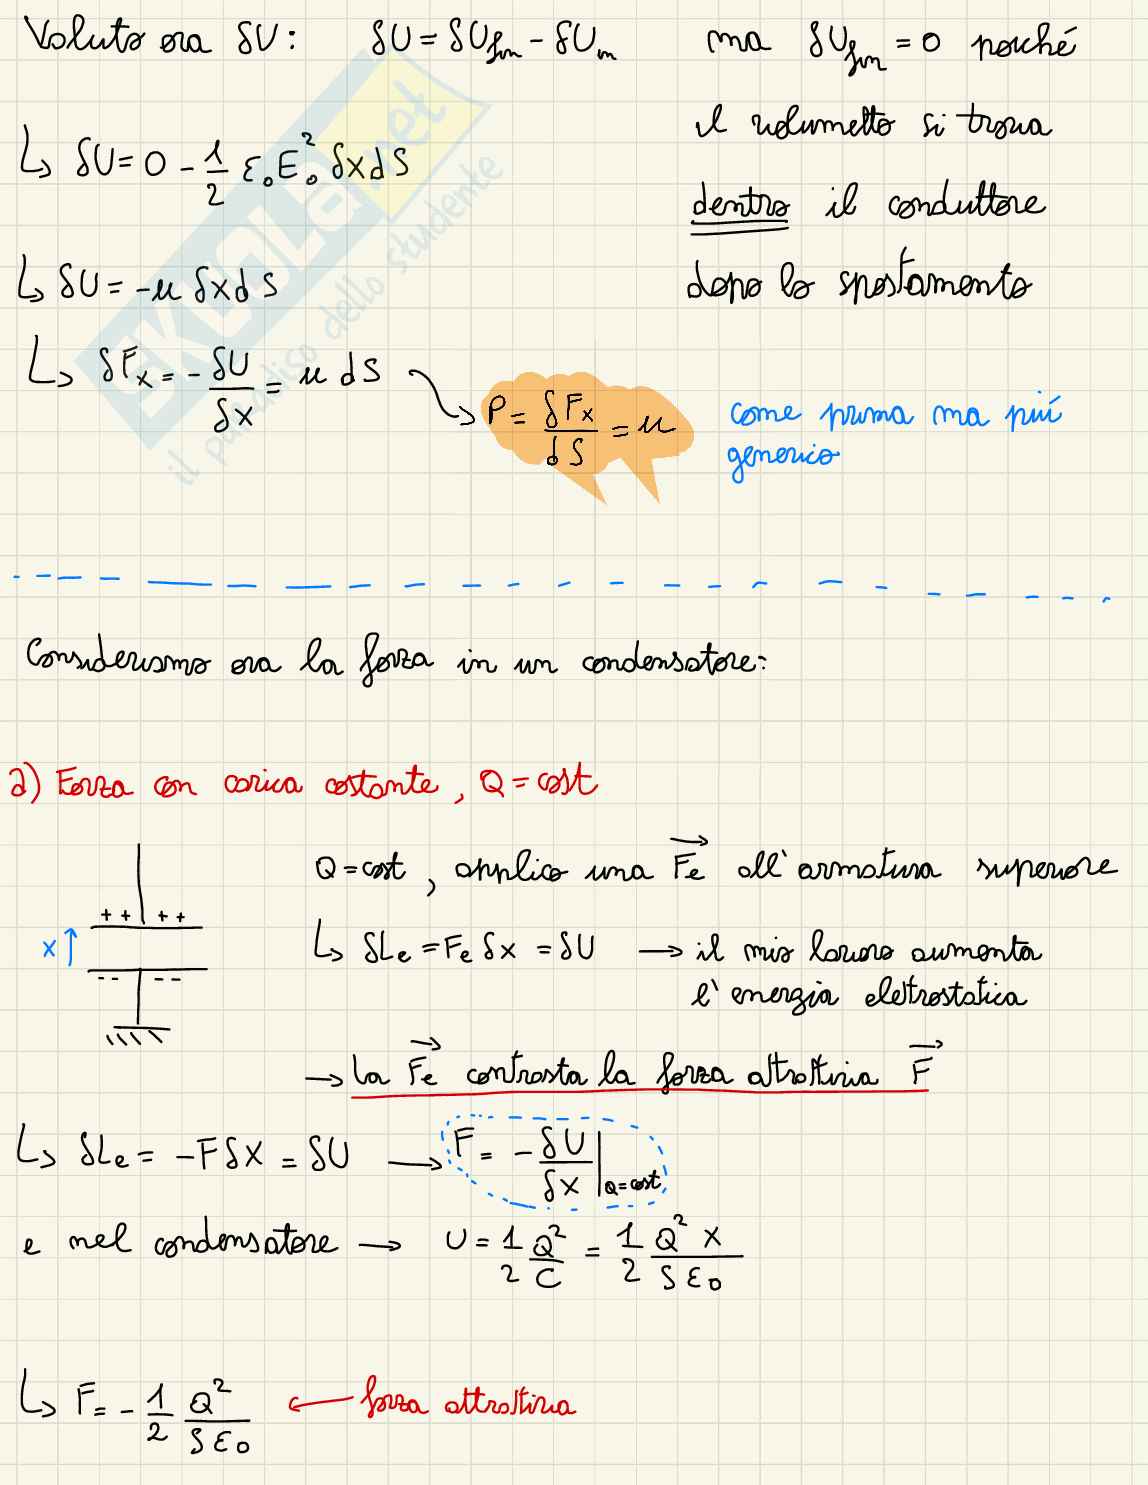 Valuto ora δU: δU = δU_fin - δU_in ma δU_fin = 0 perché
il volumetto si trova
↳ δU = 0 - 1/2 ε₀E₀² δx dS
dentro il conduttore
↳ δU = -u δx dS
dopo lo spostamento
↳ δF_x = - δU/δx = u dS → P = δF_x/dS = u
come prima ma più
generico
Consideriamo ora la forza in un condensatore:
a) Forza con carica costante, Q = cost
Q = cost, applico una F⃗e all'armatura superiore
+ + + +
x ↑
↳ δLe = Fe δx = δU → il mio lavoro aumenta
- - - -
l'energia elettrostatica
→ la F⃗e contrasta la forza attrattiva F⃗
↳ δLe = -Fδx = δU → F = - δU/δx |Q=cost
e nel condensatore → U = 1/2 Q²/C = 1/2 Q² x/Sε₀
↳ F = - 1/2 Q²/Sε₀ ← forza attrattiva
SKUOLA.net
il paradiso dello studente